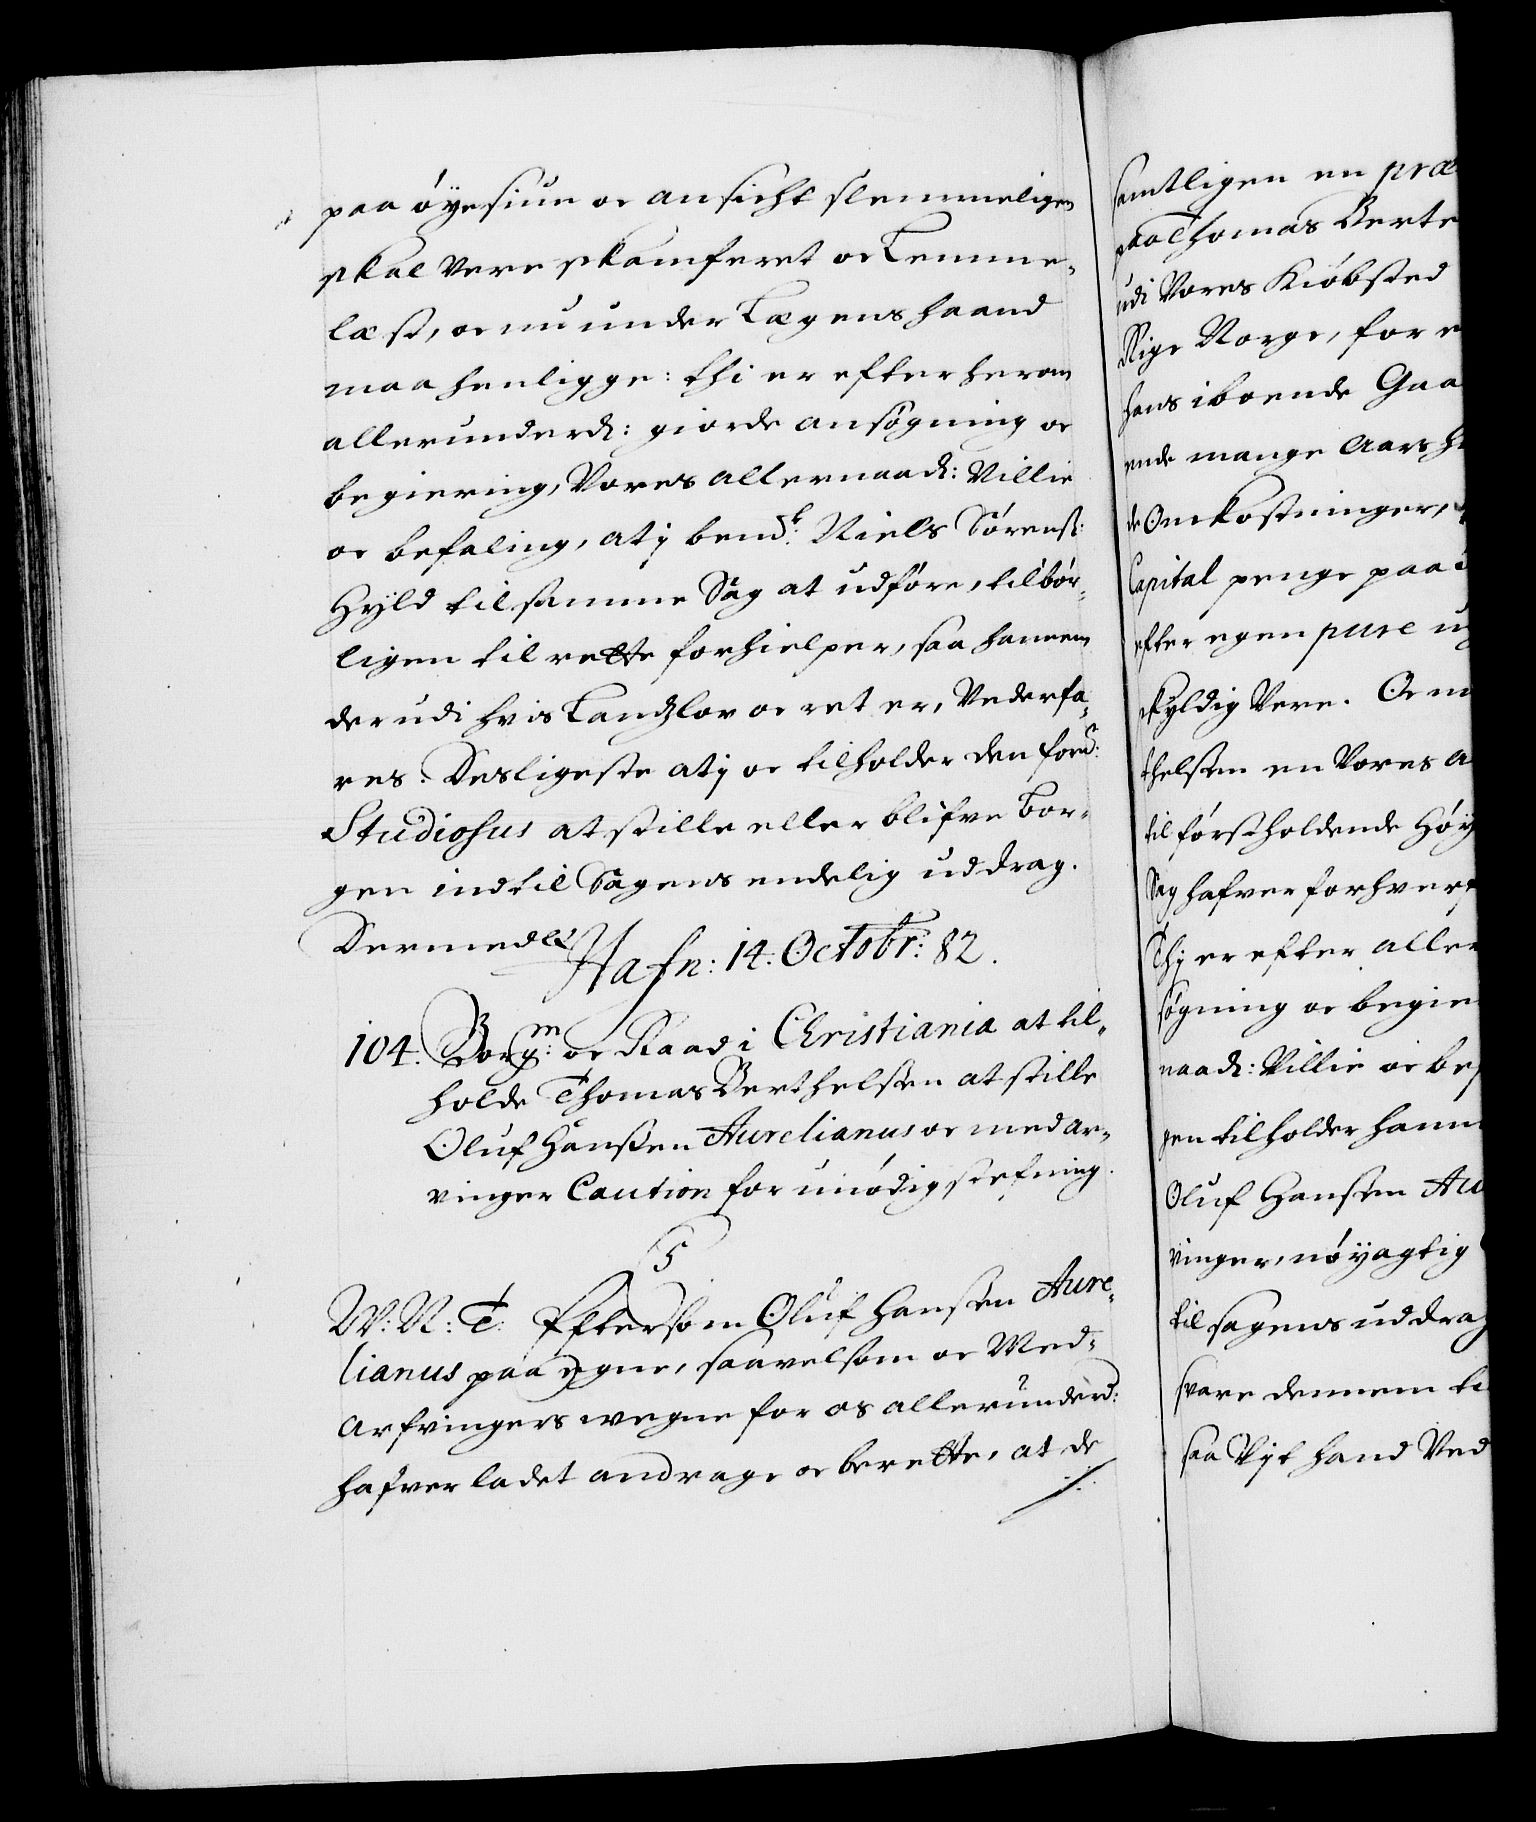 paa øÿesiun oc ansicht slemmeligen
skal være skamferet oc Lemme„
læst, oc nu under Lægens haand
maa henligge: thi er efter herom
allerunderd: giorde ansøgning oc
begiering, Vores allernaad: Villie
oc befaling, at j bemt: Niels Sørens:
Hyld til samme Sag at udføre, tilbør„
ligen til rette forhielper, saa hannem
derudi hvis Landzlov oc ret er, Vederfa„
res. Desligeste at j oc tilholder den ford:
Studiosus at stille eller blifve bor„
gen indtil Sagens endelig uddrag.
Dermed &
Hafn: 14. Octobr: 82.
104. Borgm: oc Raad i Christiania at til„
holde Thomas Berthelsen at stille
Oluf Hanssen Aurelianus oc med ar„
vinger Caution for unødig stefning.
C5
W: N: T: Eftersom Oluf Hanssen Aure„
lianus paa egne, saavelsom oc Med„
Arfvingers wegne for os allerunderd:
hafver ladet andrage oc berette, at de
samtligen en præ
paa Thomas Berte
udi Vores Kiøbsted
Rige Norge, for
hans iboende Gaa
ende mange Aars
de Omkostninger,
Capital penge paa
efter egen pure
skyldig Vere. Oc
thelsen en Vores
til førstholdende Høÿ
Sag hafver forhverf
Thj er efter aller
søgning oc begie
naad: Villie oc bef
gen tilholder hann
Oluf Hanssen Au
vinger, nøÿagtig
til sagens uddrag
svare dennem
saa Vijt hand Ved